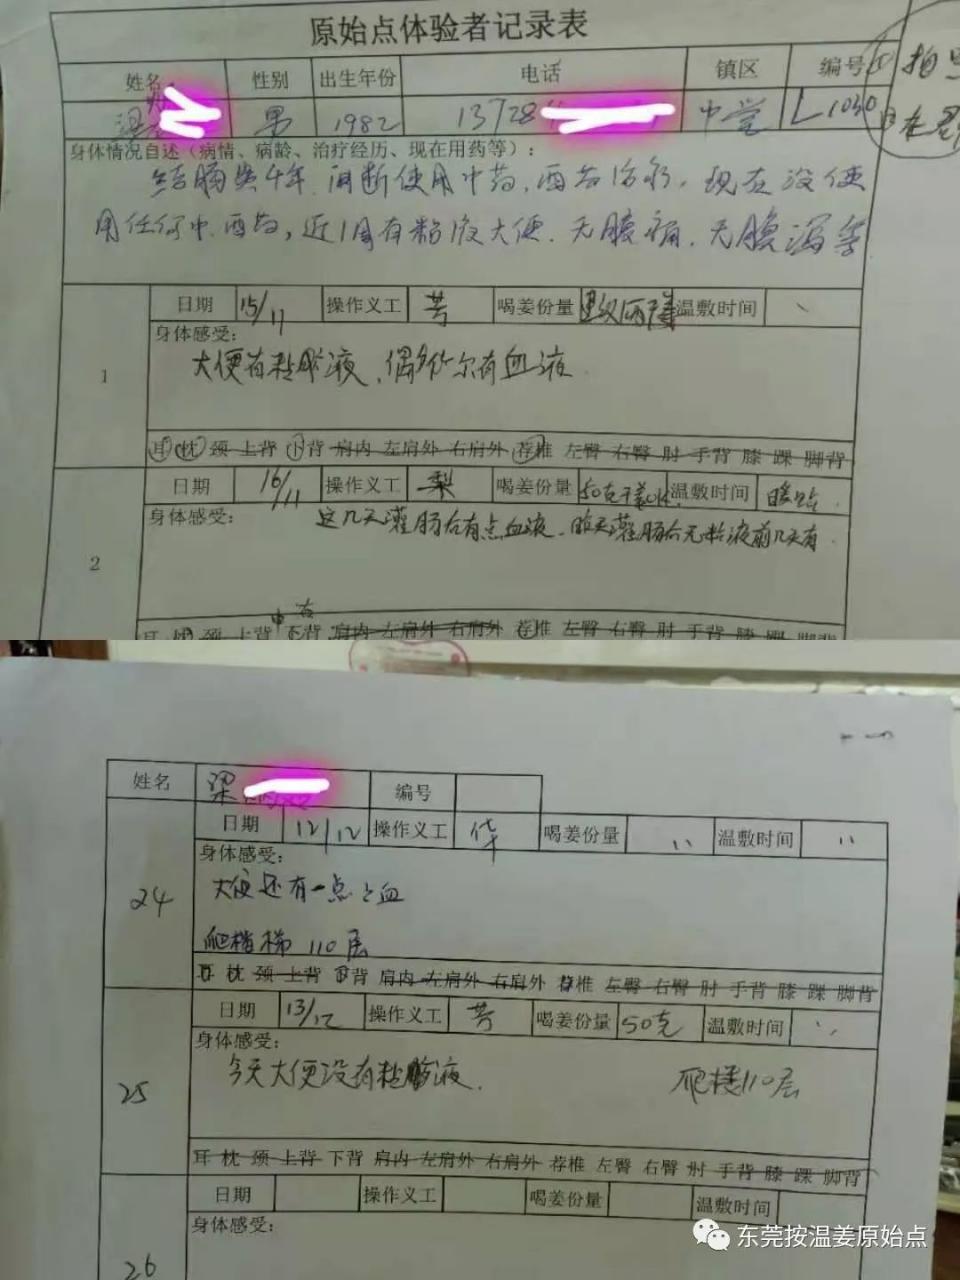 原始点体验者记录表
姓名 性别 出生年份 电话 镇区 编号
男 1982 13728 中堂 L1030
身体情况自述（病情、病龄、治疗经历、现在用药等）：
结肠炎4年，间断使用中药，西药治疗，现在没使
用任何中.西药，近1周有粘液大便.无腹痛.无腹泻等
日期 15/11 操作义工 芳 喝姜份量 温敷时间 、
1
身体感受：
大便有粘胶液、偶尔有血液
耳 枕 颈 上背 下背 肩内 左肩外 右肩外 荐椎 左臀 右臀 肘 手背 膝 踝 脚背
日期 16/11 操作义工 梨 喝姜份量 50克 温敷时间
2
身体感受：
这几天灌肠后有点血液.昨天灌肠后无粘液前几天有.
耳 枕 颈 上背 下背 肩内 左肩外 右肩外 荐椎 左臀 右臀 肘 手背 膝 踝 脚背
姓名 梁 编号
日期 12/12 操作义工 华 喝姜份量 、、 温敷时间 、、
24
身体感受：
大便还有一点点血
爬楼梯110层
耳 枕 颈 上背 下背 肩内 左肩外 右肩外 荐椎 左臀 右臀 肘 手背 膝 踝 脚背
日期 13/12 操作义工 芳 喝姜份量 50克 温敷时间 、、
25
身体感受：
今天大便没有粘胶液. 爬楼110层
耳 枕 颈 上背 下背 肩内 左肩外 右肩外 荐椎 左臀 右臀 肘 手背 膝 踝 脚背
日期 操作义工 喝姜份量 温敷时间
26
身体感受：
东莞按温姜原始点